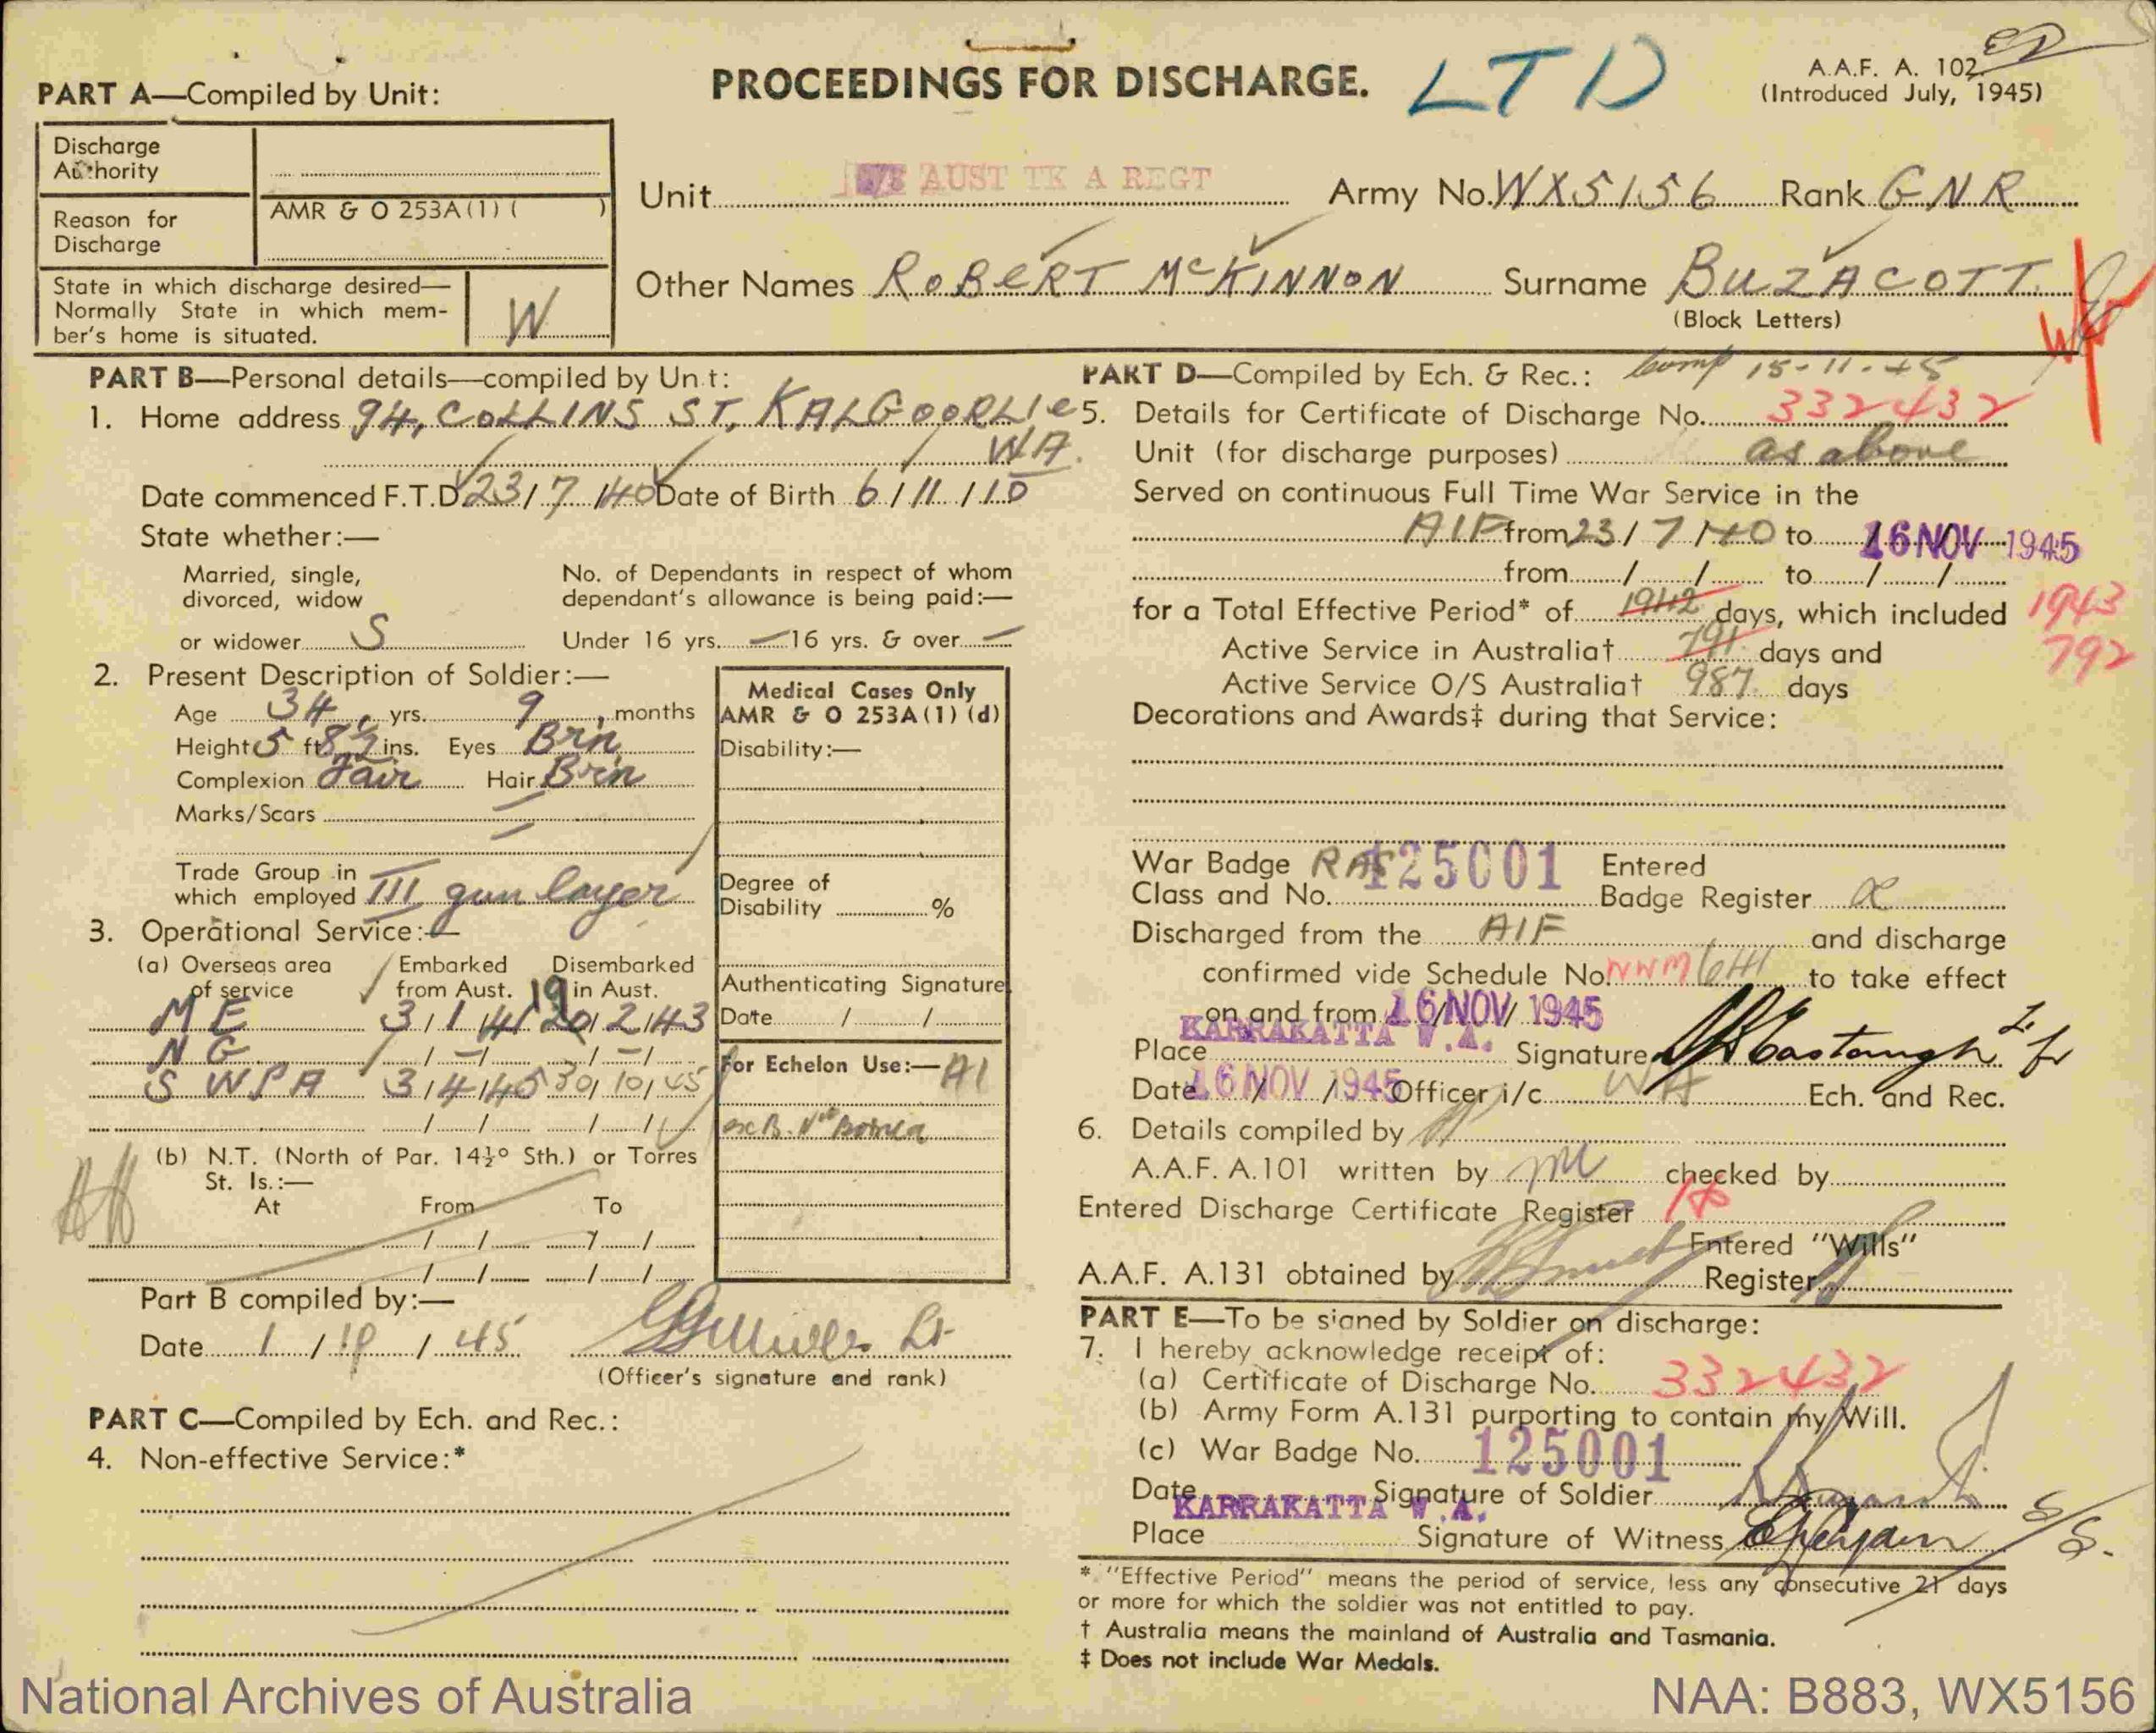 PROCEEDINGS FOR DISCHARGE. LTD
A.A.F. A. 102
(Introduced July, 1945)
PART A—Compiled by Unit:
Discharge Authority
Reason for Discharge
AMR & O 253A(1) ( )
State in which discharge desired—
Normally State in which mem-
ber's home is situated.
W
Unit AUST TK A REGT Army No. WX5156 Rank GNR
Other Names ROBERT McKINNON Surname BUZACOTT
(Block Letters)
PART B—Personal details—compiled by Unit:
1. Home address 94, COLLINS ST, KALGOORLIE
WA.
Date commenced F.T.D. 23/7/40 Date of Birth 6/11/10
State whether:—
Married, single,
divorced, widow
or widower S
No. of Dependants in respect of whom
dependant's allowance is being paid:—
Under 16 yrs. — 16 yrs. & over —
2. Present Description of Soldier:—
Age 34 yrs. 9 months
Height 5 ft 8½ ins. Eyes Brn
Complexion Fair Hair Brn
Marks/Scars —
Trade Group in
which employed III gun layer
3. Operational Service:—
(a) Overseas area of service Embarked from Aust. Disembarked in Aust.
M E 3/1/41 2/43
N G /-/ /-/
S W P A 3/4/45 30/10/45
(b) N.T. (North of Par. 14½° Sth.) or Torres
St. Is.:—
At From To
Part B compiled by:—
Date 1/10/45 Lt
(Officer's signature and rank)
Medical Cases Only
AMR & O 253A(1) (d)
Disability:—
Degree of
Disability %
Authenticating Signature
Date / /
For Echelon Use:— A1
PART C—Compiled by Ech. and Rec.:
4. Non-effective Service:*
PART D—Compiled by Ech. & Rec.: comp 15-11-45
5. Details for Certificate of Discharge No. 332432
Unit (for discharge purposes) as above
Served on continuous Full Time War Service in the
AIF from 23/7/40 to 16 NOV 1945
from / / to / /
for a Total Effective Period* of 1942 days, which included 1943
Active Service in Australia† 791 days and 792
Active Service O/S Australia† 987 days
Decorations and Awards‡ during that Service:
War Badge
Class and No. RAS 125001
Entered
Badge Register
Discharged from the AIF and discharge
confirmed vide Schedule No. to take effect
on and from 16 NOV 1945
Place KARRAKATTA W.A. Signature
Date 16 NOV 1945 Officer i/c WA Ech. and Rec.
6. Details compiled by
A.A.F. A.101 written by checked by
Entered Discharge Certificate Register
A.A.F. A.131 obtained by
Entered "Wills"
Register
PART E—To be signed by Soldier on discharge:
7. I hereby acknowledge receipt of:
(a) Certificate of Discharge No. 332432
(b) Army Form A.131 purporting to contain my Will.
(c) War Badge No. 125001
Date Signature of Soldier
KARRAKATTA W.A.
Place Signature of Witness
* "Effective Period" means the period of service, less any consecutive 21 days
or more for which the soldier was not entitled to pay.
† Australia means the mainland of Australia and Tasmania.
‡ Does not include War Medals.
National Archives of Australia
NAA: B883, WX5156